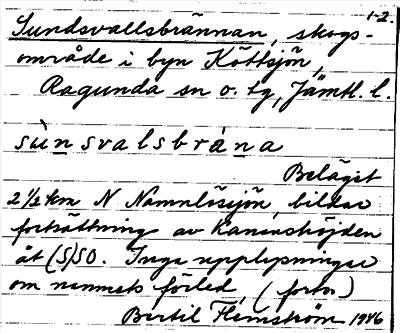 1-2.
Sundsvallsbrännan, skogs-
område i byn Köttsjön,
Ragunda sn o. tg, Jämtl. l.
sùnsvalsbrána
Beläget
2 1/2 km N Namnlössjön, bildar
fortsättning av Kananshöjden
åt (S)SO. Inga upplysningar
om namnets förled, (forts.)
Bertil Flemström 1946